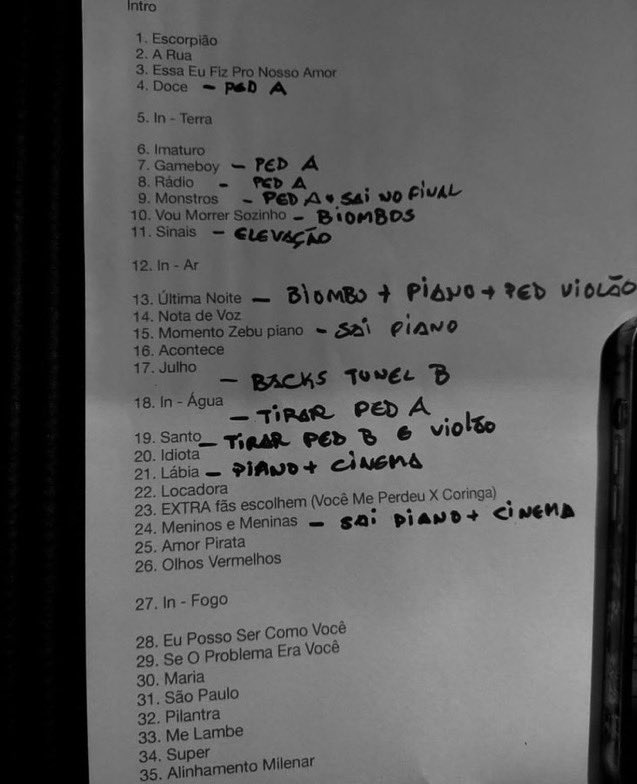 Intro
1. Escorpião
2. A Rua
3. Essa Eu Fiz Pro Nosso Amor
4. Doce - PED A
5. In - Terra
6. Imaturo
7. Gameboy - PED A
8. Rádio - PED A
9. Monstros - PED A + SAI NO FINAL
10. Vou Morrer Sozinho - BIOMBOS
11. Sinais - ELEVAÇÃO
12. In - Ar
13. Última Noite - BIOMBO + PIANO + PED VIOLÃO
14. Nota de Voz
15. Momento Zebu piano - SAI PIANO
16. Acontece
17. Julho
- BACKS TUNEL B
18. In - Água
- TIRAR PED A
19. Santo - TIRAR PED B E VIOLÃO
20. Idiota
21. Lábia - PIANO + CINEMA
22. Locadora
23. EXTRA fãs escolhem (Você Me Perdeu X Coringa)
24. Meninos e Meninas - SAI PIANO + CINEMA
25. Amor Pirata
26. Olhos Vermelhos
27. In - Fogo
28. Eu Posso Ser Como Você
29. Se O Problema Era Você
30. Maria
31. São Paulo
32. Pilantra
33. Me Lambe
34. Super
35. Alinhamento Milenar